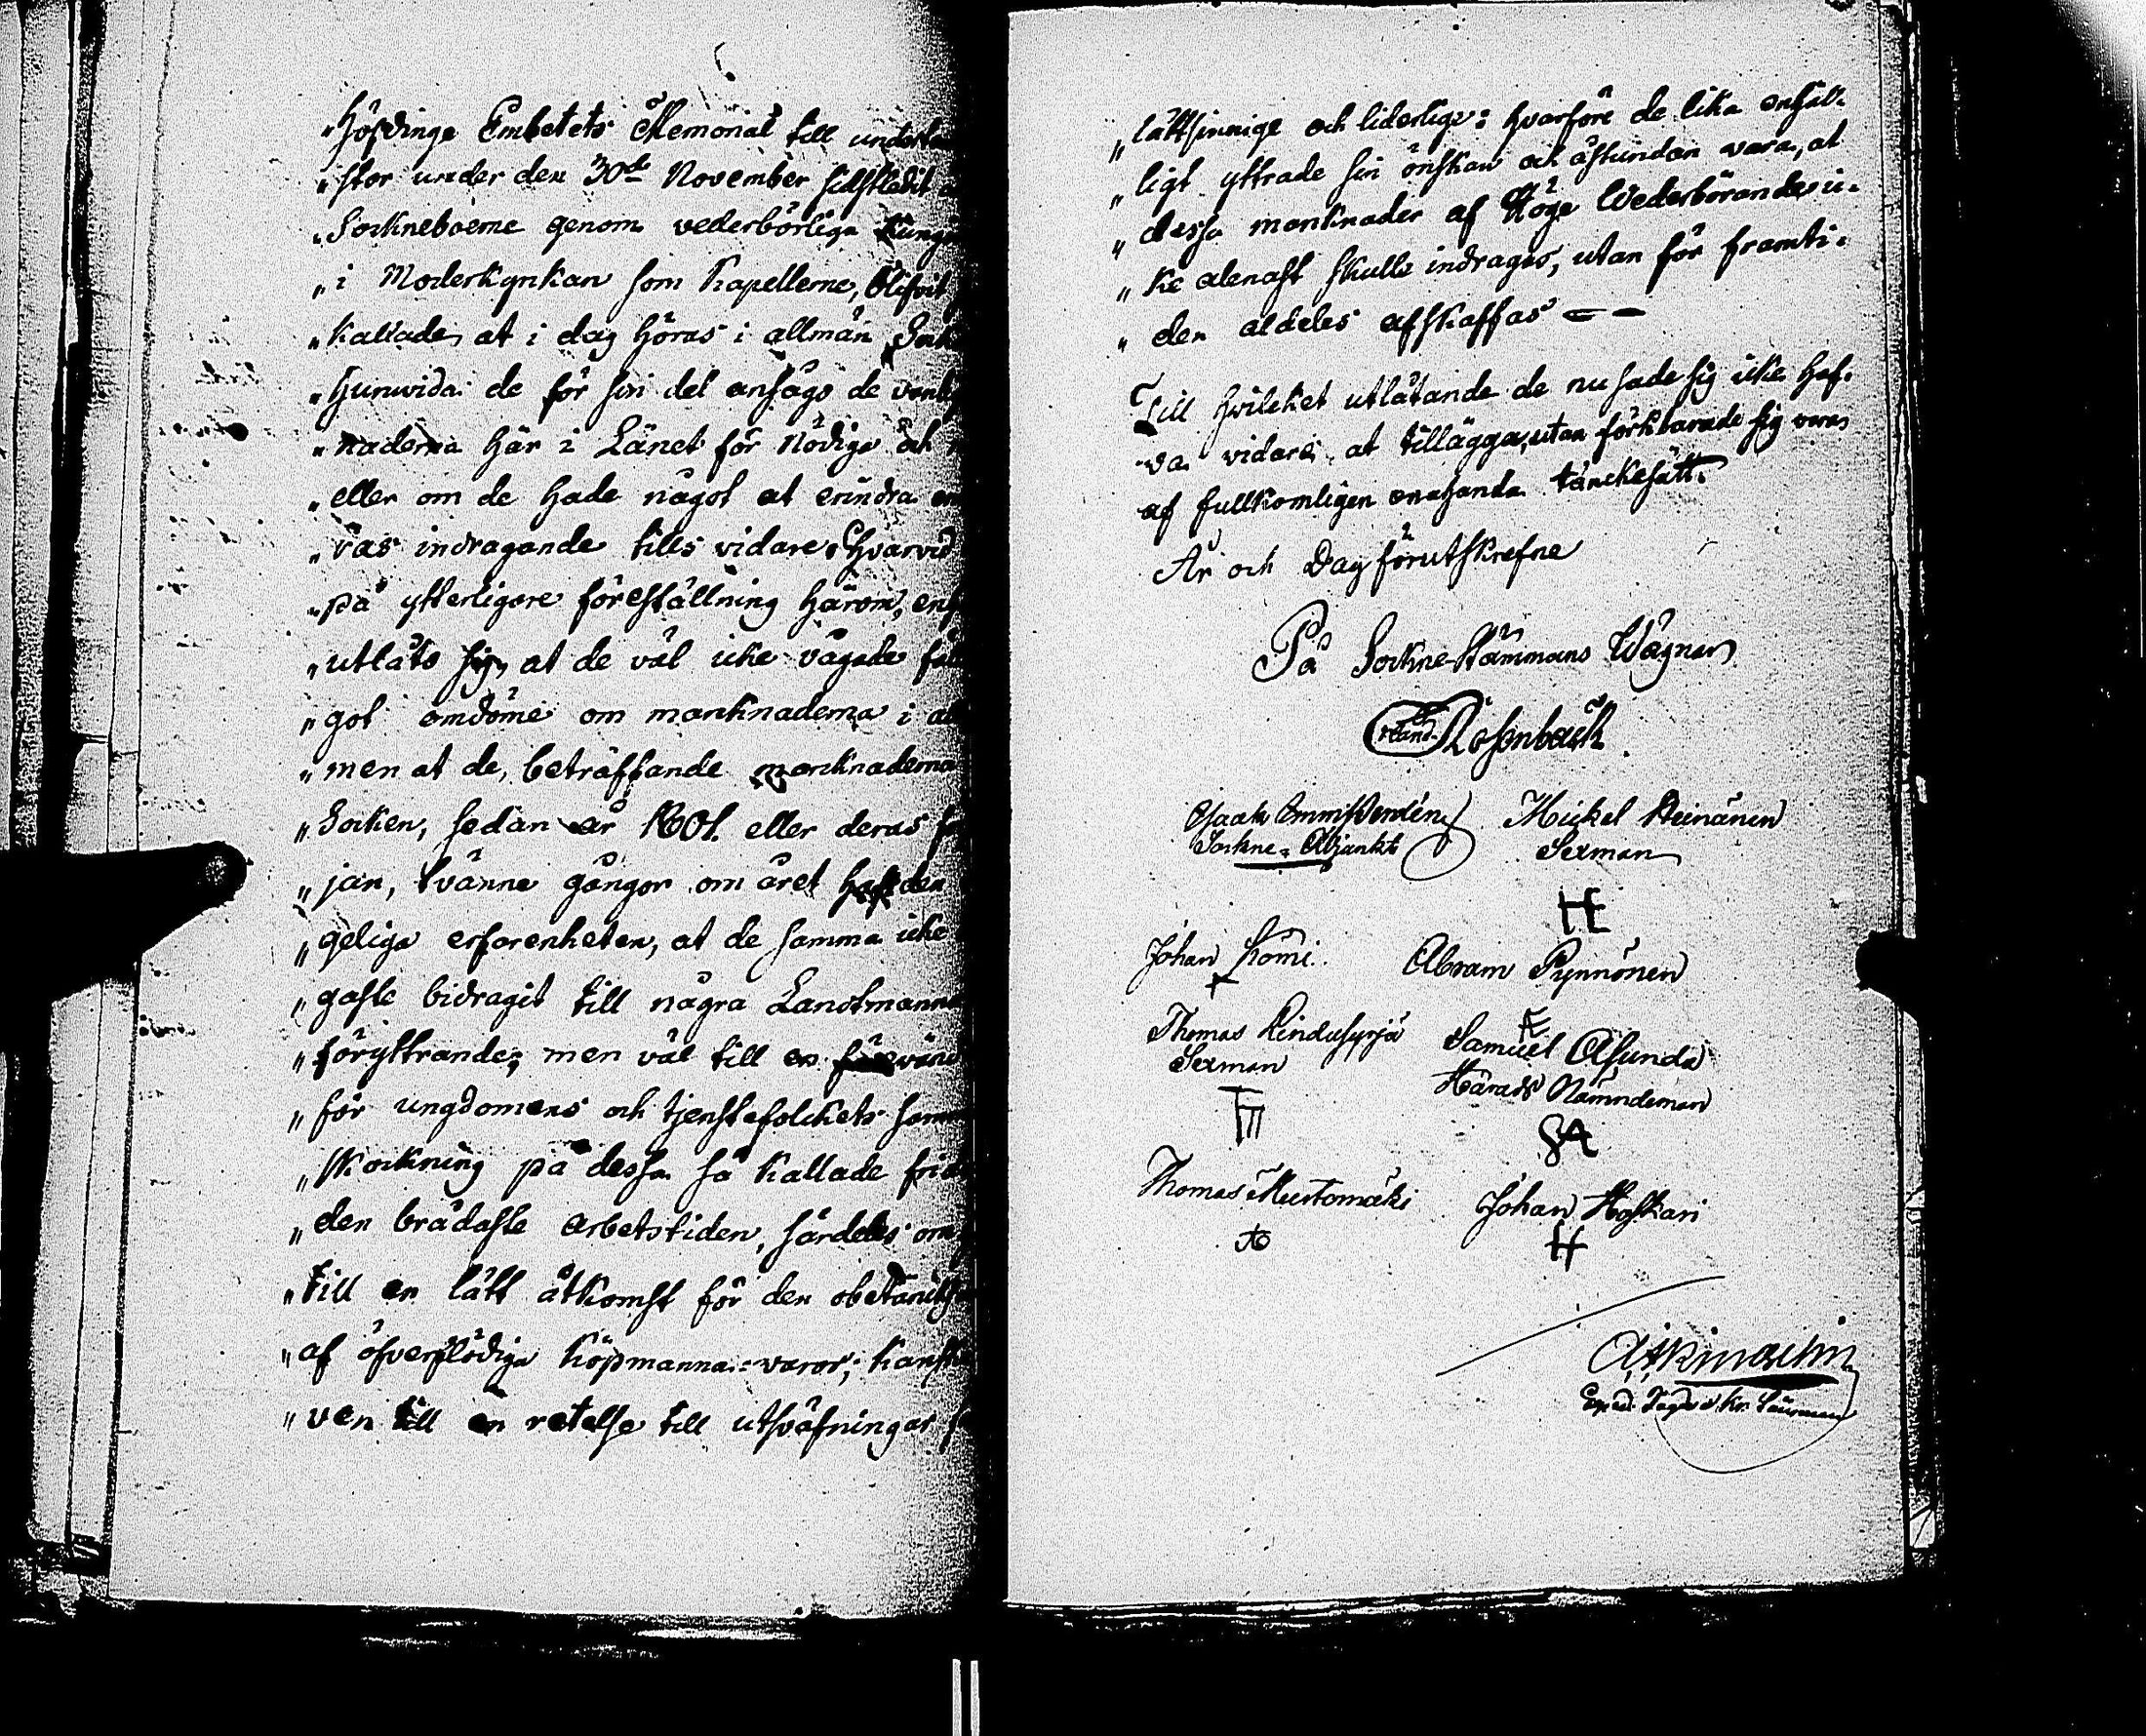 "Höfdinge Embetets Memorial till underta
"stor under den 30de November sidstledit
"Sockneboerne genom vederbörliga Kungö
"i Moderkyrkan som Kapellerne, blifvit
"kallade, at i dag höras i allmän Sock
"Huruvida de för sin del ansågo de vanl
"naderna här i Länet för nödiga och
"eller om de hade något at erindra om
"ras indragande tills vidare: Hvarvid
"på ytterligare föreställning härom, enh
"utläto sig, at de väl icke vågade fäl
"got omdöme om marknaderna i al
"men at de, beträffande marcknaderna
"Socken, sedan år 1801. eller deras
"jan, tvänne gångor om året haft den
"geliga erfarenheten, at de samma icke
"gaste bidragit till några Landtmanna
"föryttrande; men väl till en
"för ungdomens och tjenstefolckets sam
"skockning på dessa så kallade fria
"den brådaste arbetstiden, särdeles om
"till en lätt åtkomst för den obetänks
"af öfverflödiga köpmanna-varor; kanske
"ven till en retelse till utsväfningar
"lättsinnige och liderlige: hvarföre de lika enhäl-
"ligt yttrade sin önskan och åstundan vara, at
"dessa marknader af Höge Wederbörande ic-
"ke alenast skulle indragas, utan för framti-
"den aldeles afskaffas — —
Till hvilcket utlåtande de nu sade sig icke haf-
va vidare at tillägga, utan förklarade sig vara
af fullkomligen enahanda tänckesätt.
År och Dag förutskrefne
På Sockne-Stämmans Wägnar
Rosenback
Isaak Sockne-Adjunkt
Mickel Heinänen
Sexman
Johan Komi
Abram Pynnönen
Thomas
Sexman
Samuel Asunda
Härads Nämndeman
Thomas Mustomäki
Johan Hoskari